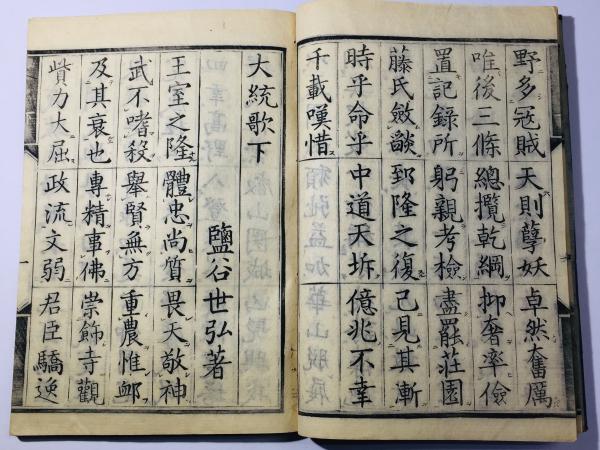 野多冦賊 天則孽妖 卓然奮厲
唯後三條 總攬乾綱 抑奢率儉
置記録所 躬親考檢 盡罷莊園
藤氏斂燄 郅隆之復 已見其漸
時乎命乎 中道天坼 億兆不幸
千載嘆惜
大統歌下
鹽谷世弘著
王室之隆 體忠尚質 畏天敬神
武不嗜殺 舉賢無方 重農惟卹
及其衰也 專精事佛 崇飾寺觀
貲力大屈 政流文弱 君臣驕逸